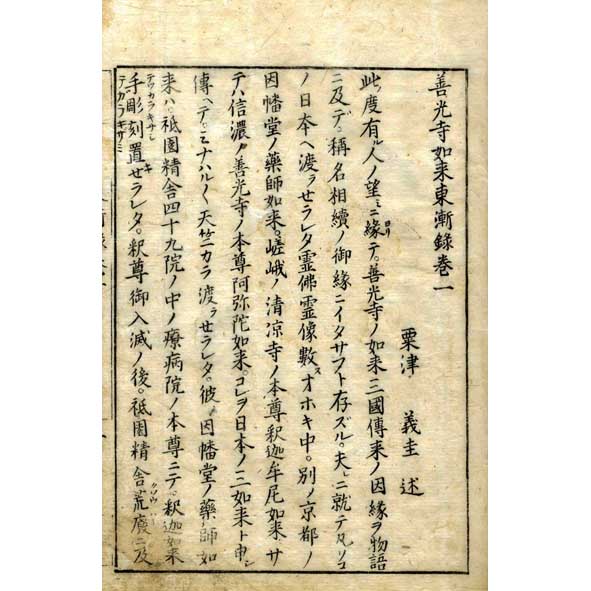 善光寺如来東漸録巻一
粟津 義圭 述
此度有ル人ノ望ミニ縁テ。善光寺ノ如来三國傳来ノ因縁ヲ物語
ニ及デ。稱名相續ノ御縁ニイタサフト存ズル。夫レニ就テ凡ソコ
ノ日本ヘ渡ラせラレタ霊佛霊像數スオホキ中。別ノ京都ノ
因幡堂ノ藥師如来。嵯峨ノ清凉寺ノ本尊釈迦牟尼如来。サ
テハ信濃ノ善光寺ノ本尊阿弥陀如来。コレヲ日本ノ三如来ト申シ
傳ヘテ。ミナハルバル天竺カラ渡ラせラレタ。彼ノ因幡堂ノ藥師如
来ハ。祇園精舎四十九院ノ中ノ療病院ノ本尊ニテ。釈迦如来
手彫刻置キせラレタ。釈尊御入滅ノ後。祇園精舎荒廢ニ及